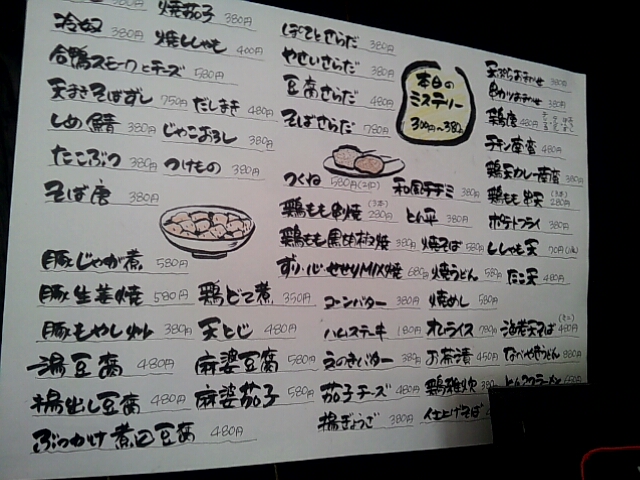 焼茄子 380円
冷奴 380円
焼ししゃも 400円
合鴨スモークとチーズ 580円
天まきそばずし 750円
だしまき 480円
しめ鯖 380円
じゃこおろし 380円
たこぶつ 380円
つけもの 380円
そば唐 380円
豚じゃが煮 580円
豚生姜焼 580円
鶏どて煮 350円
豚もやし炒 380円
天とじ 480円
湯豆腐 480円
麻婆豆腐 580円
揚出し豆腐 480円
麻婆茄子 580円
ぶっかけ煮豆腐 480円
ぽてとさらだ 380円
やせいさらだ 380円
豆腐さらだ 480円
そばさらだ 780円
本日の
ミステリー
300円〜380
つくね 580円
和風チヂミ 380円
鶏もも串焼 (3本) 280円
とん平 580円
鶏もも黒胡椒焼 380円
焼そば 580円
ずり・心・せせりMIX焼 680円
焼うどん 580円
コーンバター 380円
焼めし 580円
ハムステーキ 180円
オムライス 780円
えのきバター 380円
お茶漬 450円
茄子チーズ 480円
鶏雑炊 380円
揚ぎょうざ 380円
仕上げそば
天ぷらおまかせ 380円
串かつおまかせ 380円
鶏唐 480円
チキン南蛮 480円
鶏天カレー南蛮 380円
鶏もも串天 (3本) 280円
ポテトフライ 380円
ししゃも天
たこ天 480円
海老天そば (ミニ) 480円
なべやきうどん 880円
とんこつラーメン